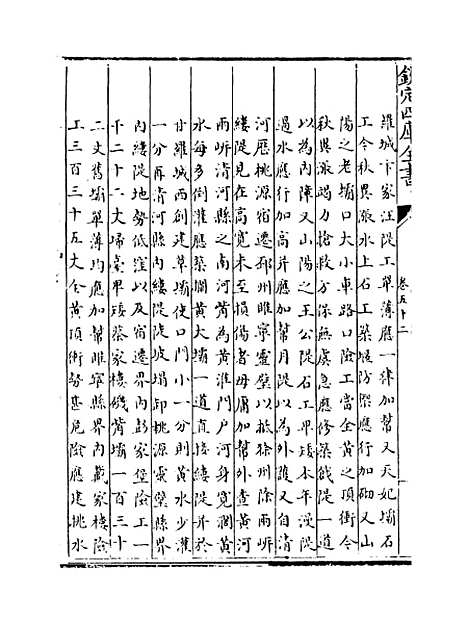 欽定四庫全書
卷五十二
蘿城卞家汪隄工單薄應一律加幫又天妃壩石
工今秋異漲水上石工築堰防禦應行加砌又山
陽之老壩口大小車路口險工當全黄之頂衝今
秋異漲竭力搶救方保無虞急應修築戧隄一道
以為內障又山陽之王公隄石工卑矮本年漫隄
過水應行加高并應加幫月隄以為外護又自清
河歷桃源宿遷邳州睢寧靈璧以抵徐州除兩岍
縷隄見在高寛未至損傷者毋庸加幫外查黄河
兩岍清河縣之南河嵜為黄淮門户河身寛濶黄
水每多倒灌應築攔黄大壩一道直接縷隄并於
甘羅城西創建草壩使口門小一分則黄水少灌
一分再清河縣内縷隄陡坡塌卸桃源靈璧縣界
内縷隄地勢低窪以及宿遷界内彭家堡險工一
千二十二丈埽臺卑矮蔡家樓磯嘴壩一百三十
二丈舊壩單薄均應加幫睢寧縣界内戴家樓險
工三百三十五丈全黄頂衝勢甚危險應建挑水